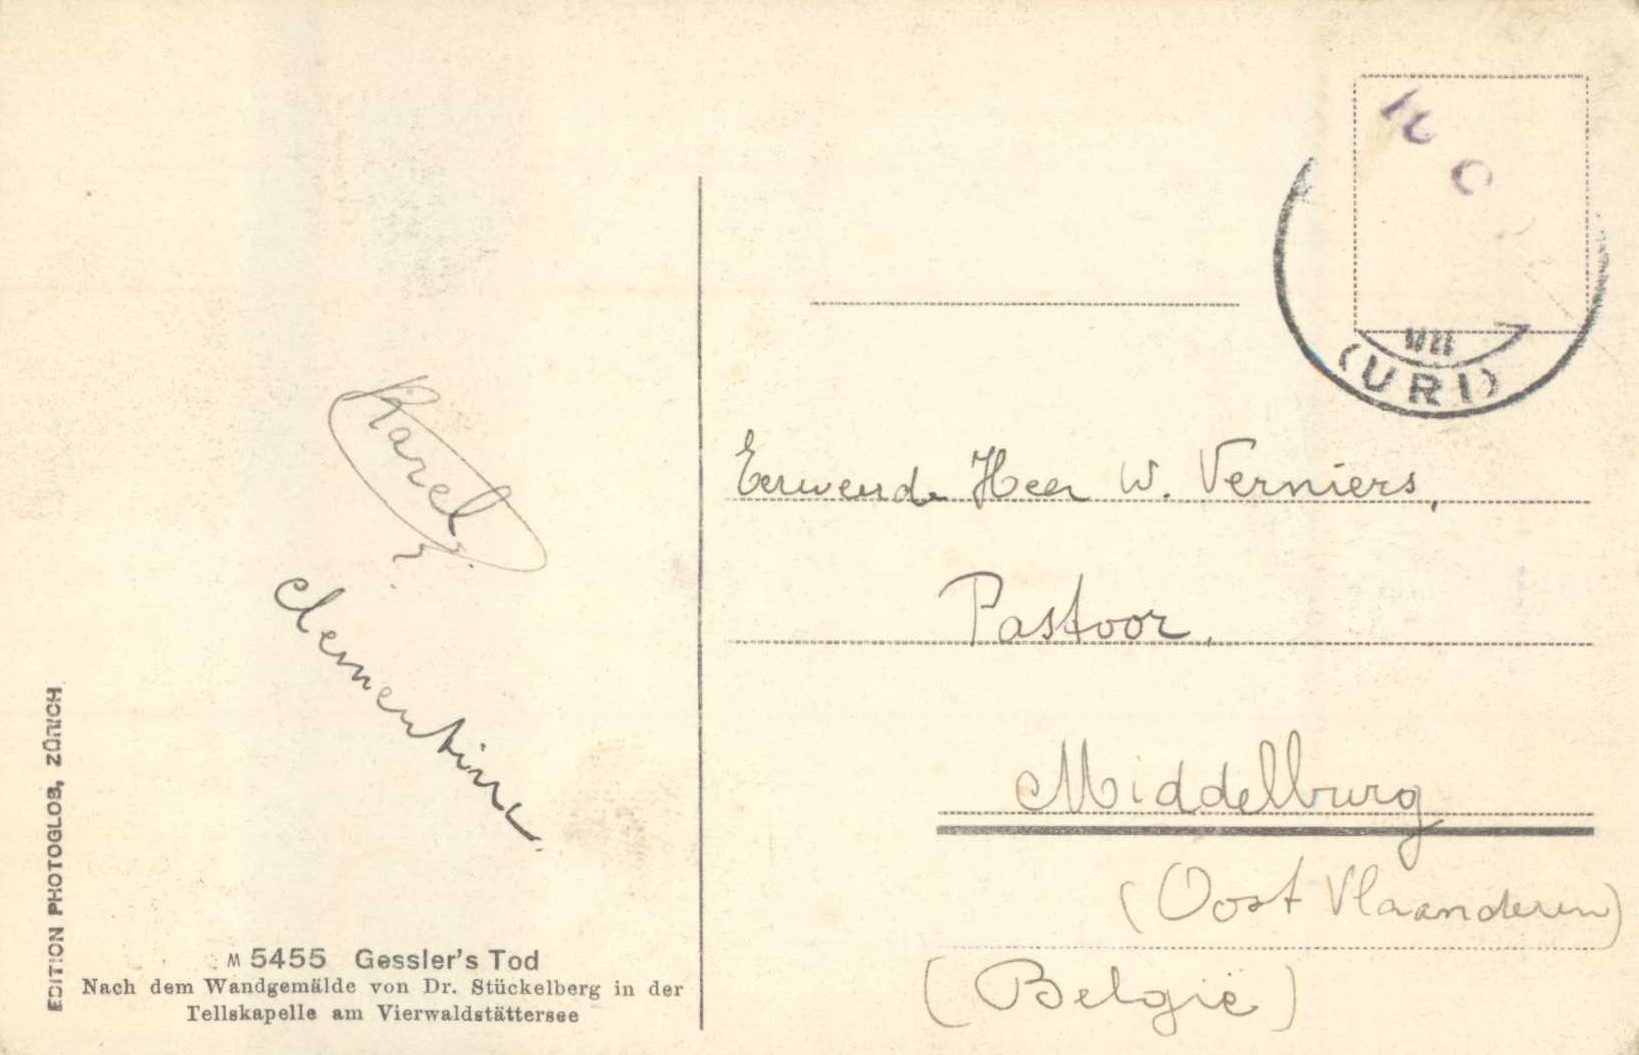 (URI)
VII
Karel
Clementine
Eerwende Heer W. Verniers,
Pastoor,
Middelburg
(Oost Vlaanderen)
(België)
M 5455 Gessler's Tod
Nach dem Wandgemälde von Dr. Stückelberg in der
Tellskapelle am Vierwaldstättersee
EDITION PHOTOGLOB, ZÜRICH